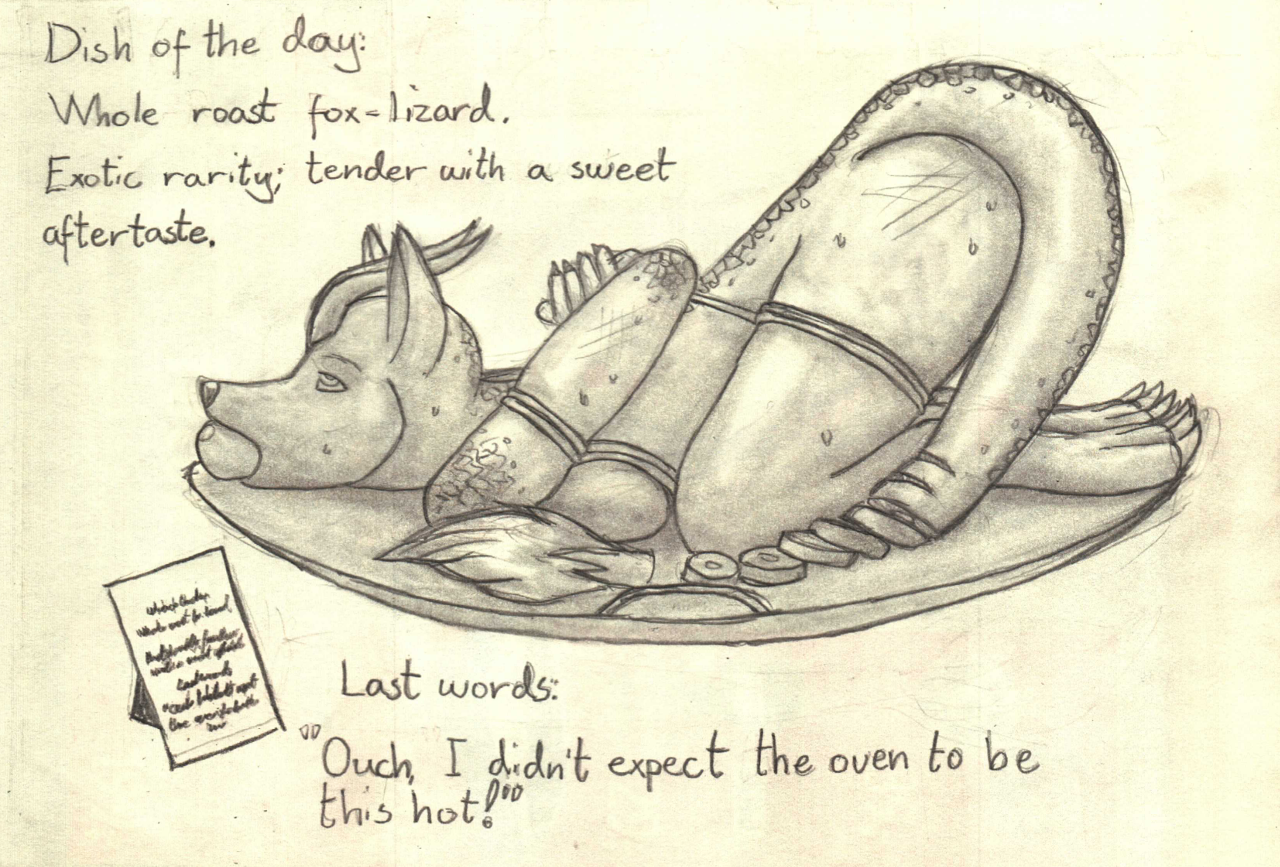 Dish of the day:
Whole roast fox-lizard.
Exotic rarity; tender with a sweet
aftertaste.
Last words:
"Ouch, I didn't expect the oven to be
this hot!"